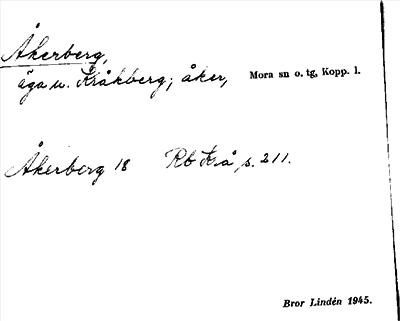 Åkerberg,
äga u. Kråkberg; åker, Mora sn o. tg, Kopp. l.
Åkerberg 18 Rb Krå, s. 211.
Bror Lindén 1945.